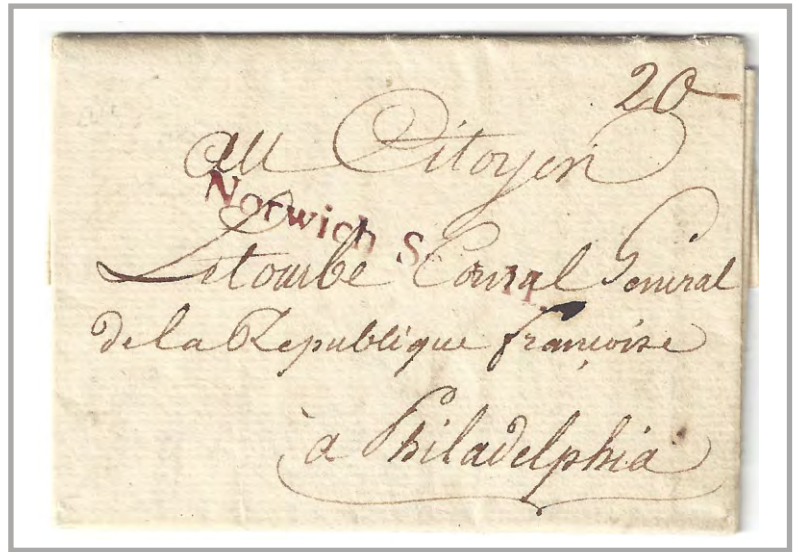 20
Au Citoyen
Norwich S
Letombe Consul Général
11
de la Republique françoise
à Philadelphia